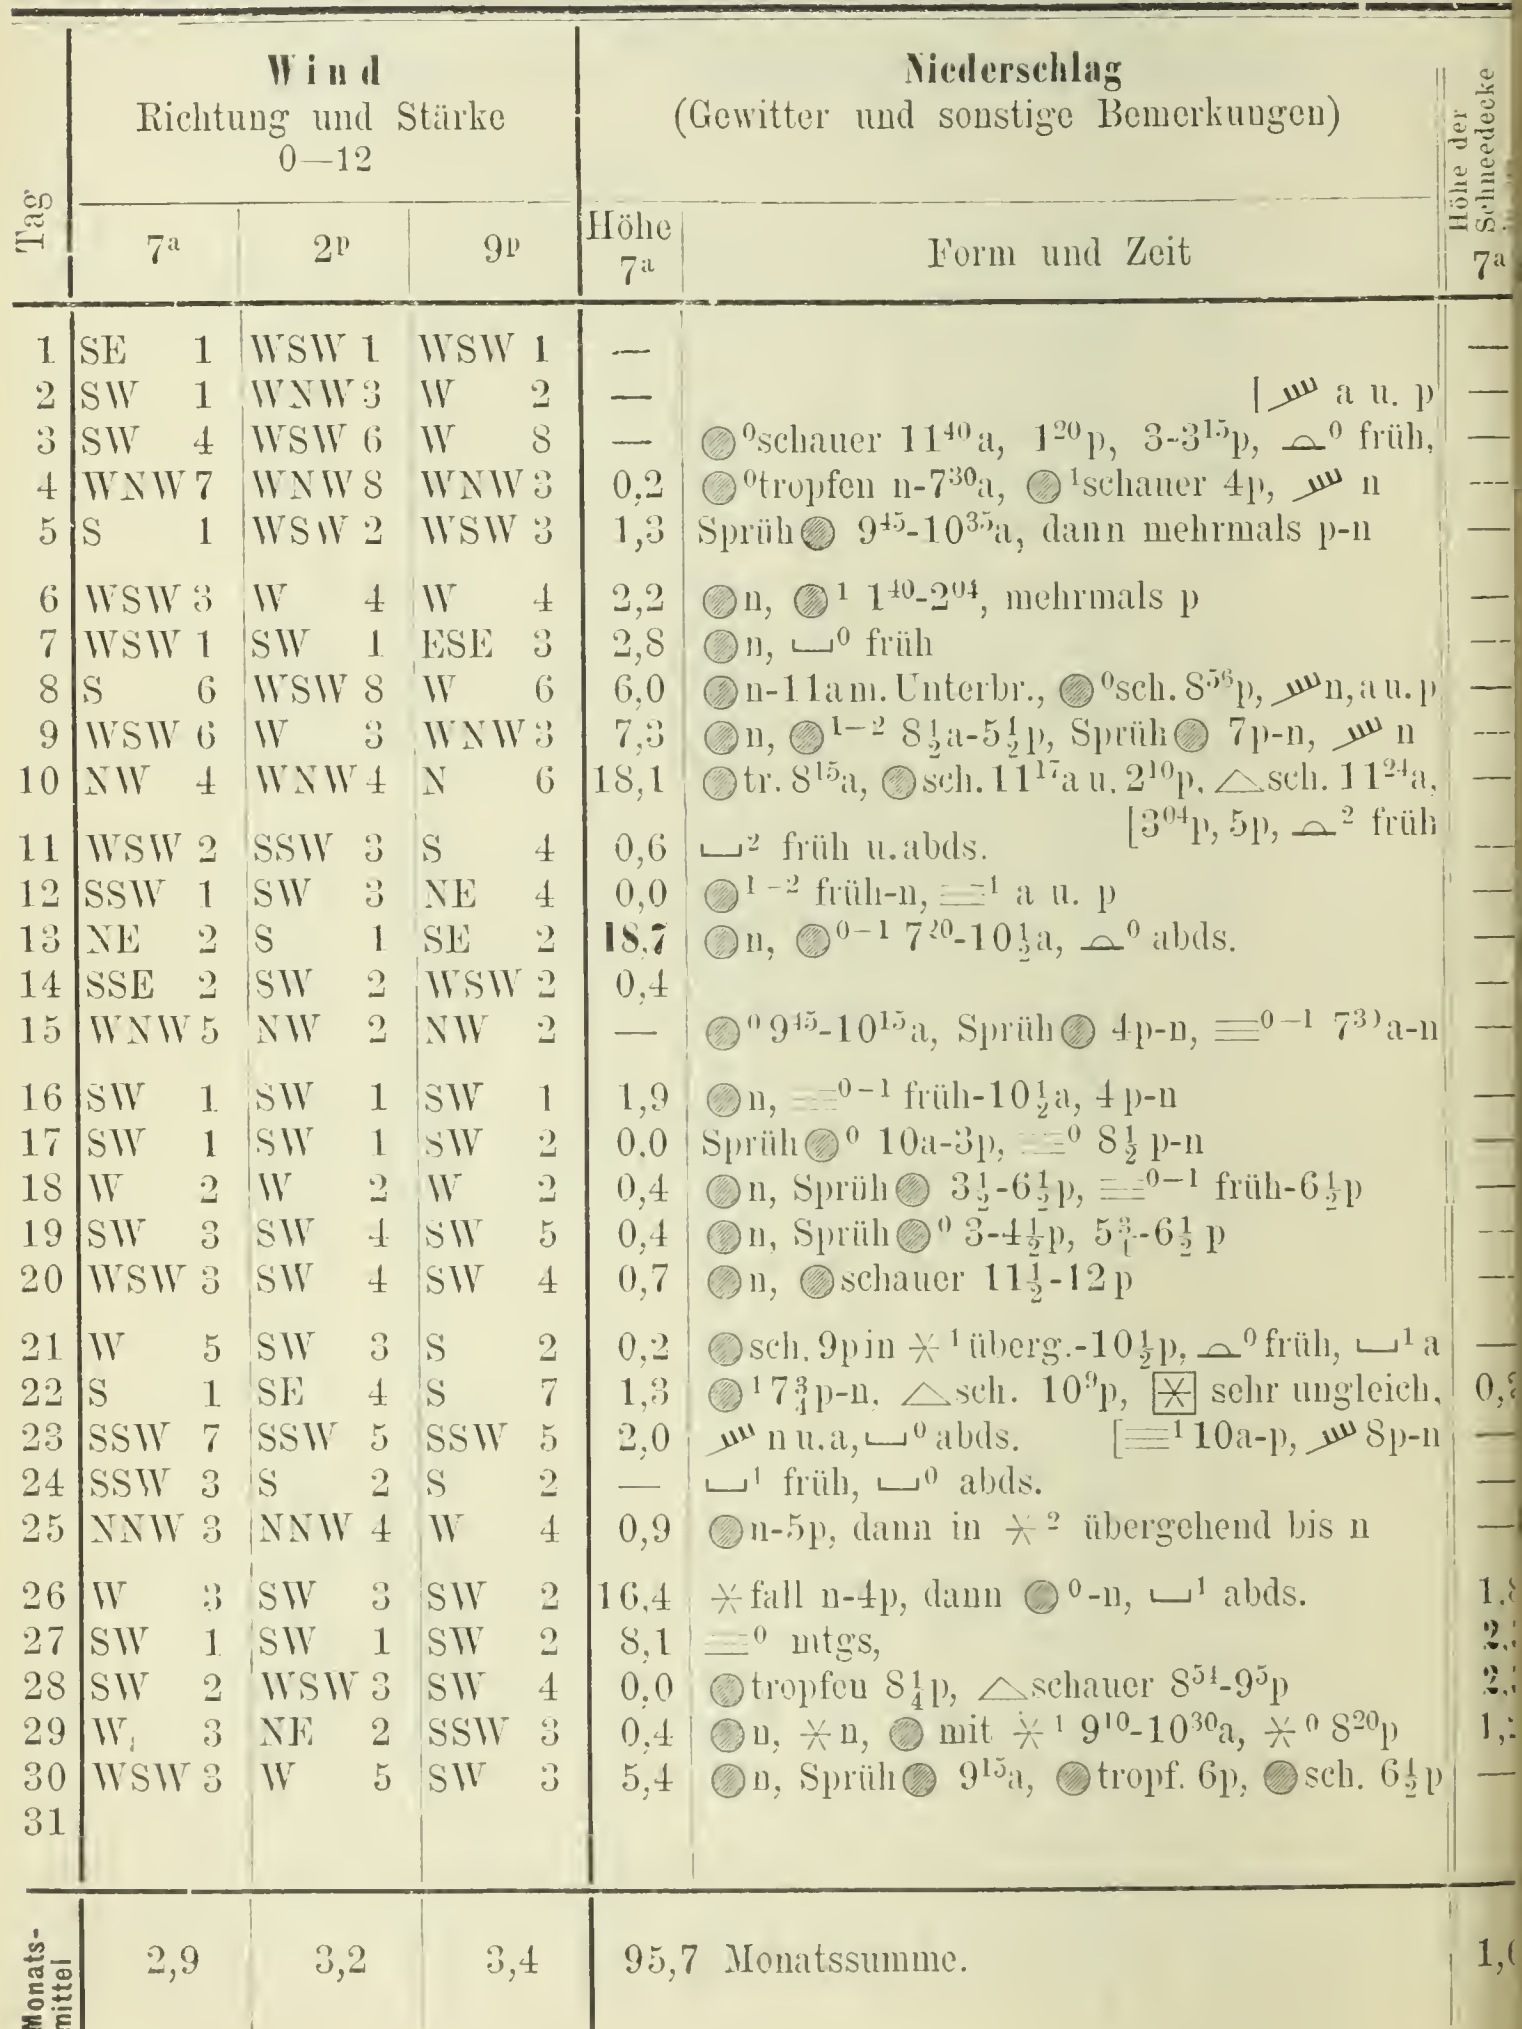 Wind
Richtung und Stärke
0—12
Niederschlag
(Gewitter und sonstige Bemerkungen)
Höhe der
Schneedecke
Tag
7a 2p 9p Höhe 7a Form und Zeit 7a
1 SE 1 WSW 1 WSW 1 — —
2 SW 1 WNW 3 W 2 — [ a u. p —
3 SW 4 WSW 6 W 8 — ⁰schauer 11⁴⁰a, 1²⁰p, 3-3¹⁵p, ⁰ früh, —
4 WNW 7 WNW 8 WNW 3 0,2 ⁰tropfen n-7³⁰a, ¹schauer 4p, n —
5 S 1 WSW 2 WSW 3 1,3 Sprüh 9⁴⁵-10³⁵a, dann mehrmals p-n —
6 WSW 3 W 4 W 4 2,2 n, ¹ 1⁴⁰-2⁰⁴, mehrmals p —
7 WSW 1 SW 1 ESE 3 2,8 n, ⁰ früh —
8 S 6 WSW 8 W 6 6,0 n-11am. Unterbr., ⁰sch. 8⁵⁶p, n, a u. p —
9 WSW 6 W 3 WNW 3 7,3 n, ¹⁻² 8½a-5½p, Sprüh 7p-n, n —
10 NW 4 WNW 4 N 6 18,1 tr. 8¹⁵a, sch. 11¹⁷a u. 2¹⁰p, △sch. 11²⁴a, —
[3⁰⁴p, 5p, ² früh
11 WSW 2 SSW 3 S 4 0,6 ² früh u. abds. —
12 SSW 1 SW 3 NE 4 0,0 ¹⁻² früh-n, ≡¹ a u. p —
13 NE 2 S 1 SE 2 18,7 n, ⁰⁻¹ 7²⁰-10½a, ⁰ abds. —
14 SSE 2 SW 2 WSW 2 0,4 —
15 WNW 5 NW 2 NW 2 — ⁰ 9⁴⁵-10¹⁵a, Sprüh 4p-n, ≡⁰⁻¹ 7³⁰a-n —
16 SW 1 SW 1 SW 1 1,9 n, ≡⁰⁻¹ früh-10½a, 4p-n —
17 SW 1 SW 1 SW 2 0,0 Sprüh⁰ 10a-3p, ≡⁰ 8½ p-n —
18 W 2 W 2 W 2 0,4 n, Sprüh 3½-6½p, ≡⁰⁻¹ früh-6½p —
19 SW 3 SW 4 SW 5 0,4 n, Sprüh⁰ 3-4½p, 5¾-6½ p —
20 WSW 3 SW 4 SW 4 0,7 n, schauer 11½-12p —
21 W 5 SW 3 S 2 0,2 sch. 9p in ¹überg.-10½p, ⁰früh, ¹a —
22 S 1 SE 4 S 7 1,3 ¹7¾p-n, △sch. 10⁹p, sehr ungleich,
23 SSW 7 SSW 5 SSW 5 2,0 n u. a, ⁰abds. [≡¹ 10a-p, 8p-n —
24 SSW 3 S 2 S 2 — ¹ früh, ⁰ abds. —
25 NNW 3 NNW 4 W 4 0,9 n-5p, dann in ² übergehend bis n —
26 W 3 SW 3 SW 2 16,4 fall n-4p, dann ⁰-n, ¹ abds.
27 SW 1 SW 1 SW 2 8,1 ≡⁰ mtgs,
28 SW 2 WSW 3 SW 4 0,0 tropfen 8¼p, △schauer 8⁵⁴-9⁵p
29 W 3 NE 2 SSW 3 0,4 n, n, mit ¹ 9¹⁰-10³⁰a, ⁰ 8²⁰p
30 WSW 3 W 5 SW 3 5,4 n, Sprüh 9¹⁵a, tropf. 6p, sch. 6½p —
31
Monats-
mittel
2,9 3,2 3,4 95,7 Monatssumme.